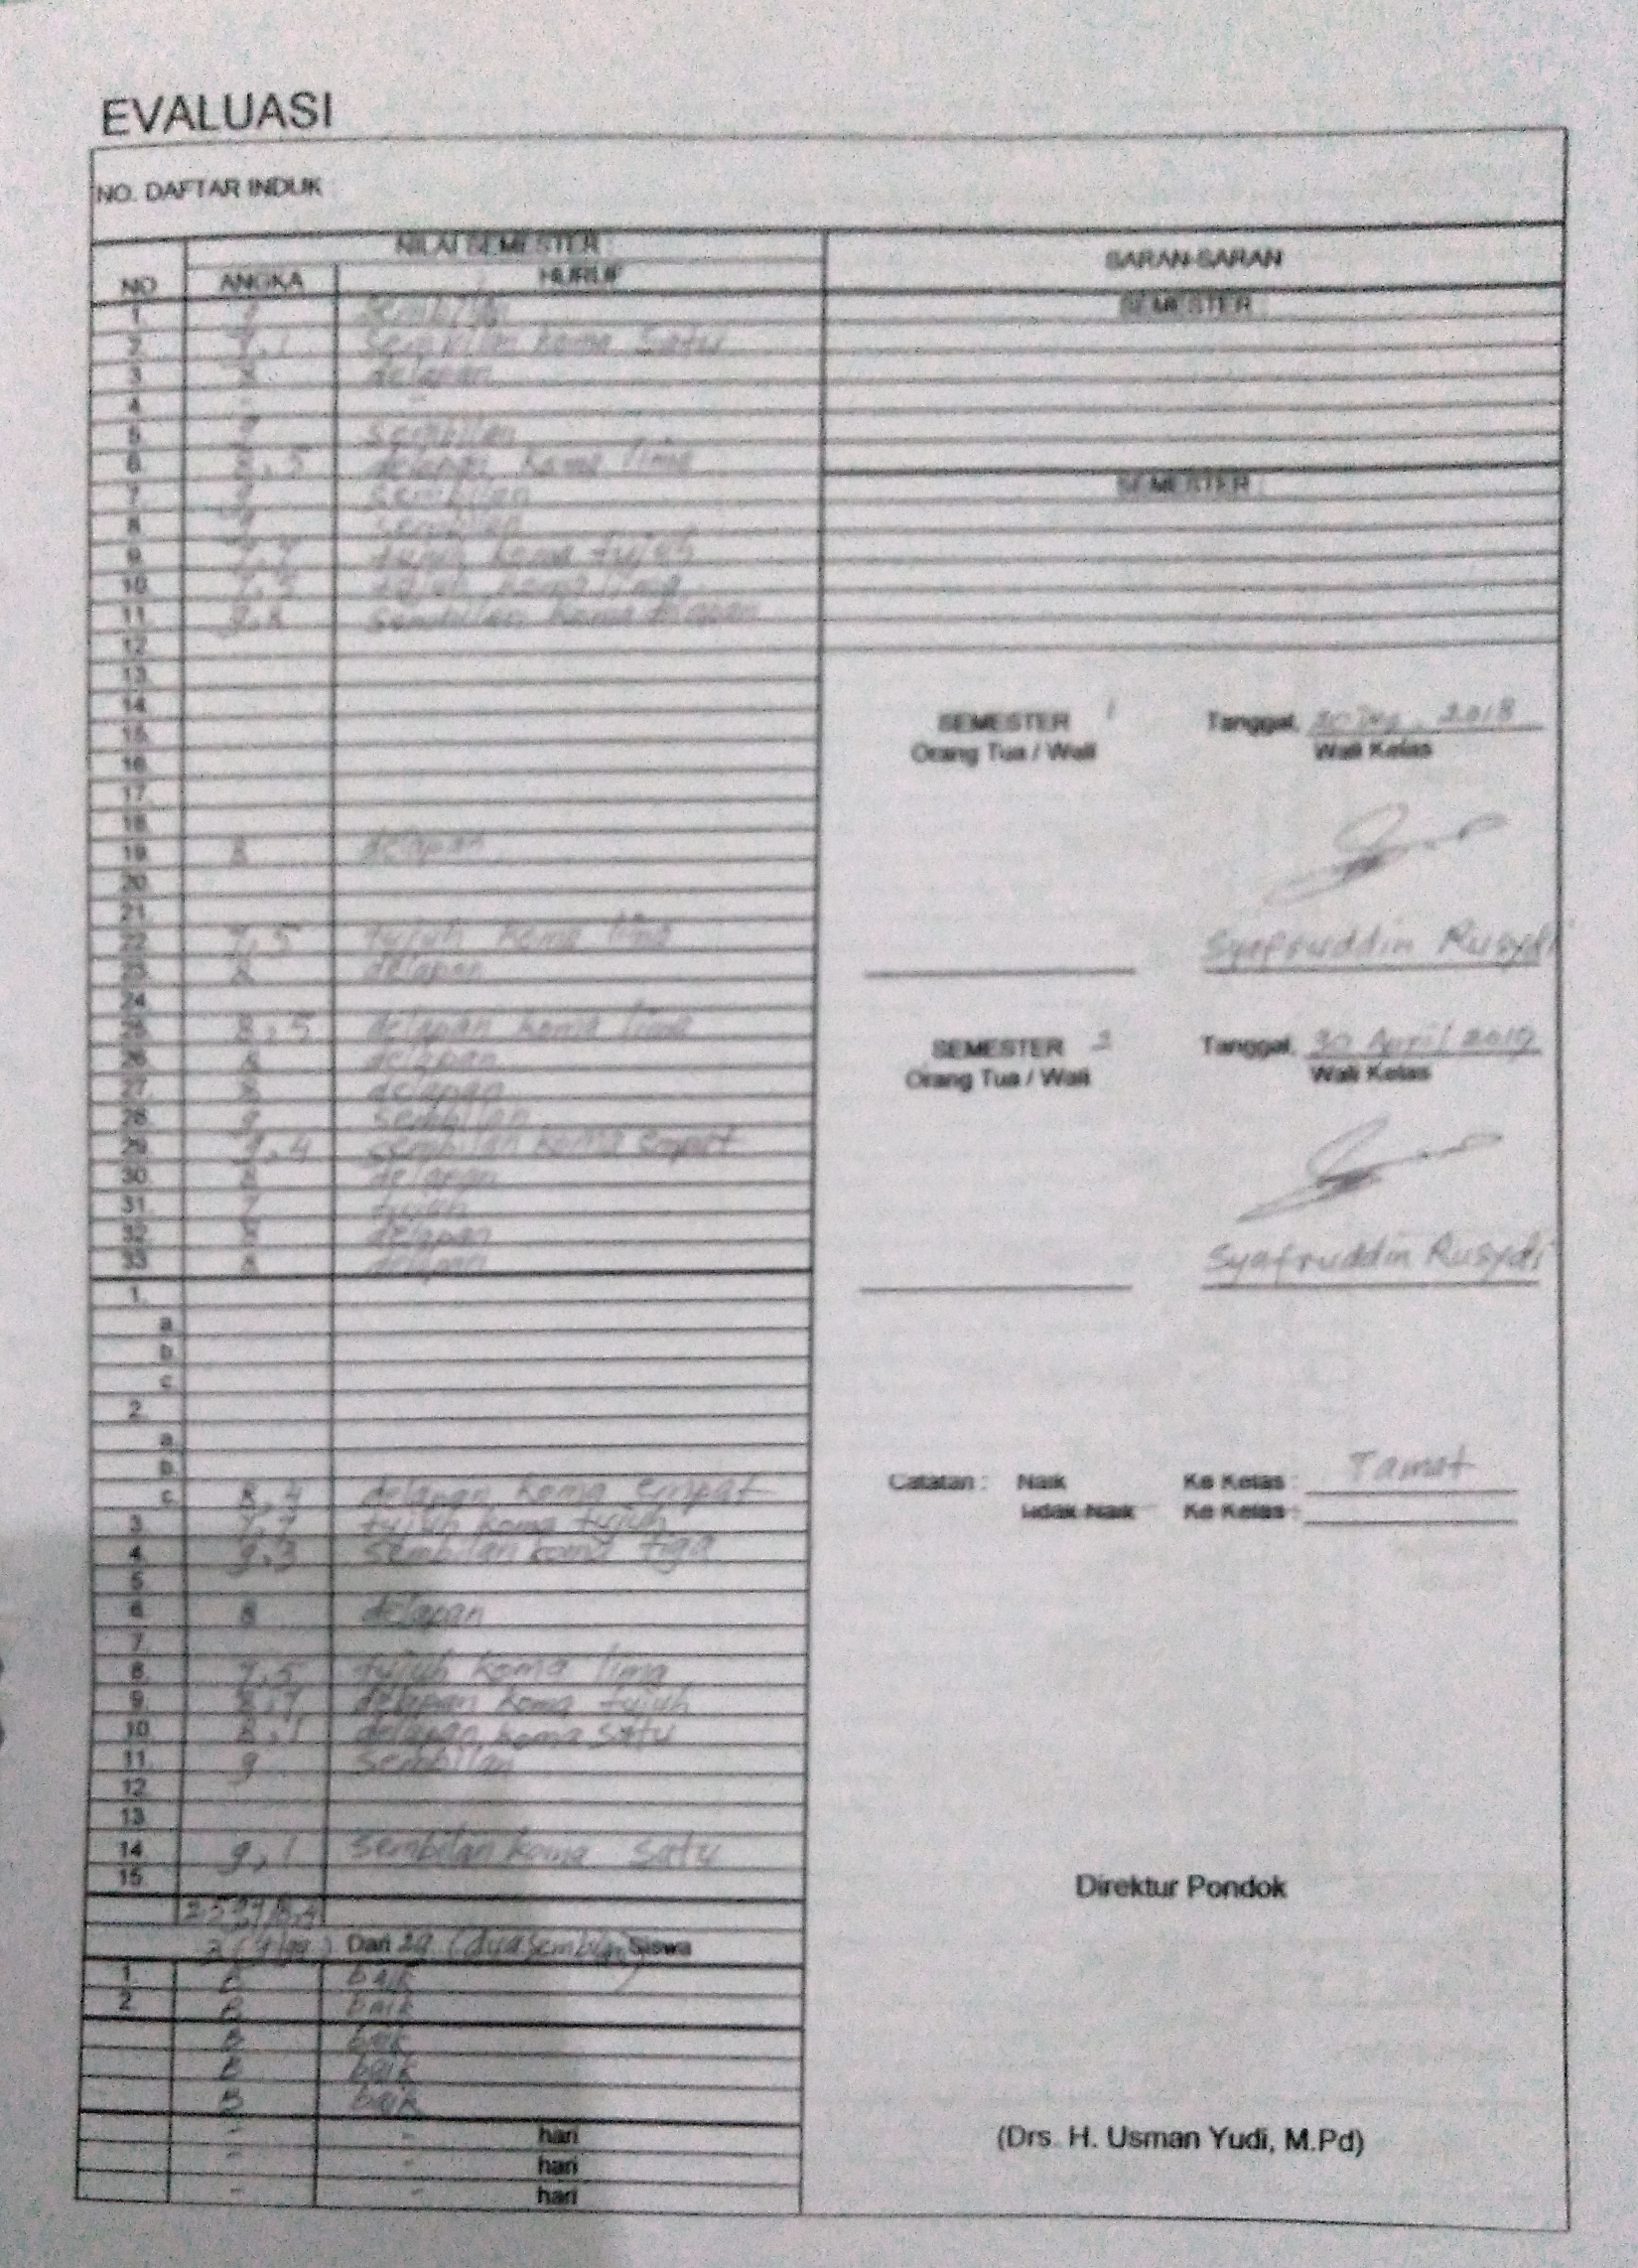 EVALUASI
NO. DAFTAR INDUK
NILAI SEMESTER :
SARAN-SARAN
NO ANGKA HURUF
SEMESTER :
1. 9 sembilan
2. 9,1 sembilan koma satu
3. 8 delapan
4. - -
5. 9 sembilan
6. 8,5 delapan koma lima
7. 9 sembilan
SEMESTER :
8. 9 sembilan
9. 7,7 tujuh koma tujuh
10. 7,5 tujuh koma lima
11. 9,8 sembilan koma delapan
12.
13.
14.
15.
16.
17.
18.
19. 8 delapan
20.
21.
22. 7,5 tujuh koma lima
23. 8 delapan
24.
25. 8,5 delapan koma lima
26. 8 delapan
27. 8 delapan
28. 9 sembilan
29. 9,4 sembilan koma empat
30. 8 delapan
31. 7 tujuh
32. 8 delapan
33. 8 delapan
1.
a.
b.
c.
2.
a.
b.
c. 8,4 delapan koma empat
3. 7,7 tujuh koma tujuh
4. 9,3 sembilan koma tiga
5.
6. 8 delapan
7.
8. 7,5 tujuh koma lima
9. 8,7 delapan koma tujuh
10. 8,1 delapan koma satu
11. 9 sembilan
12.
13.
14. 9,1 sembilan koma satu
15.
3 (tiga) Dari 29 (dua sembilan) Siswa
1. B baik
2. B baik
B baik
B baik
B baik
- - hari
- - hari
- - hari
SEMESTER 1 Tanggal, 20 Des. 2018
Orang Tua / Wali Wali Kelas
Syafruddin Rusydi
SEMESTER 2 Tanggal, 30 April 2019
Orang Tua / Wali Wali Kelas
Syafruddin Rusydi
Catatan : Naik Ke Kelas : Tamat
Tidak Naik Ke Kelas :
Direktur Pondok
(Drs. H. Usman Yudi, M.Pd)